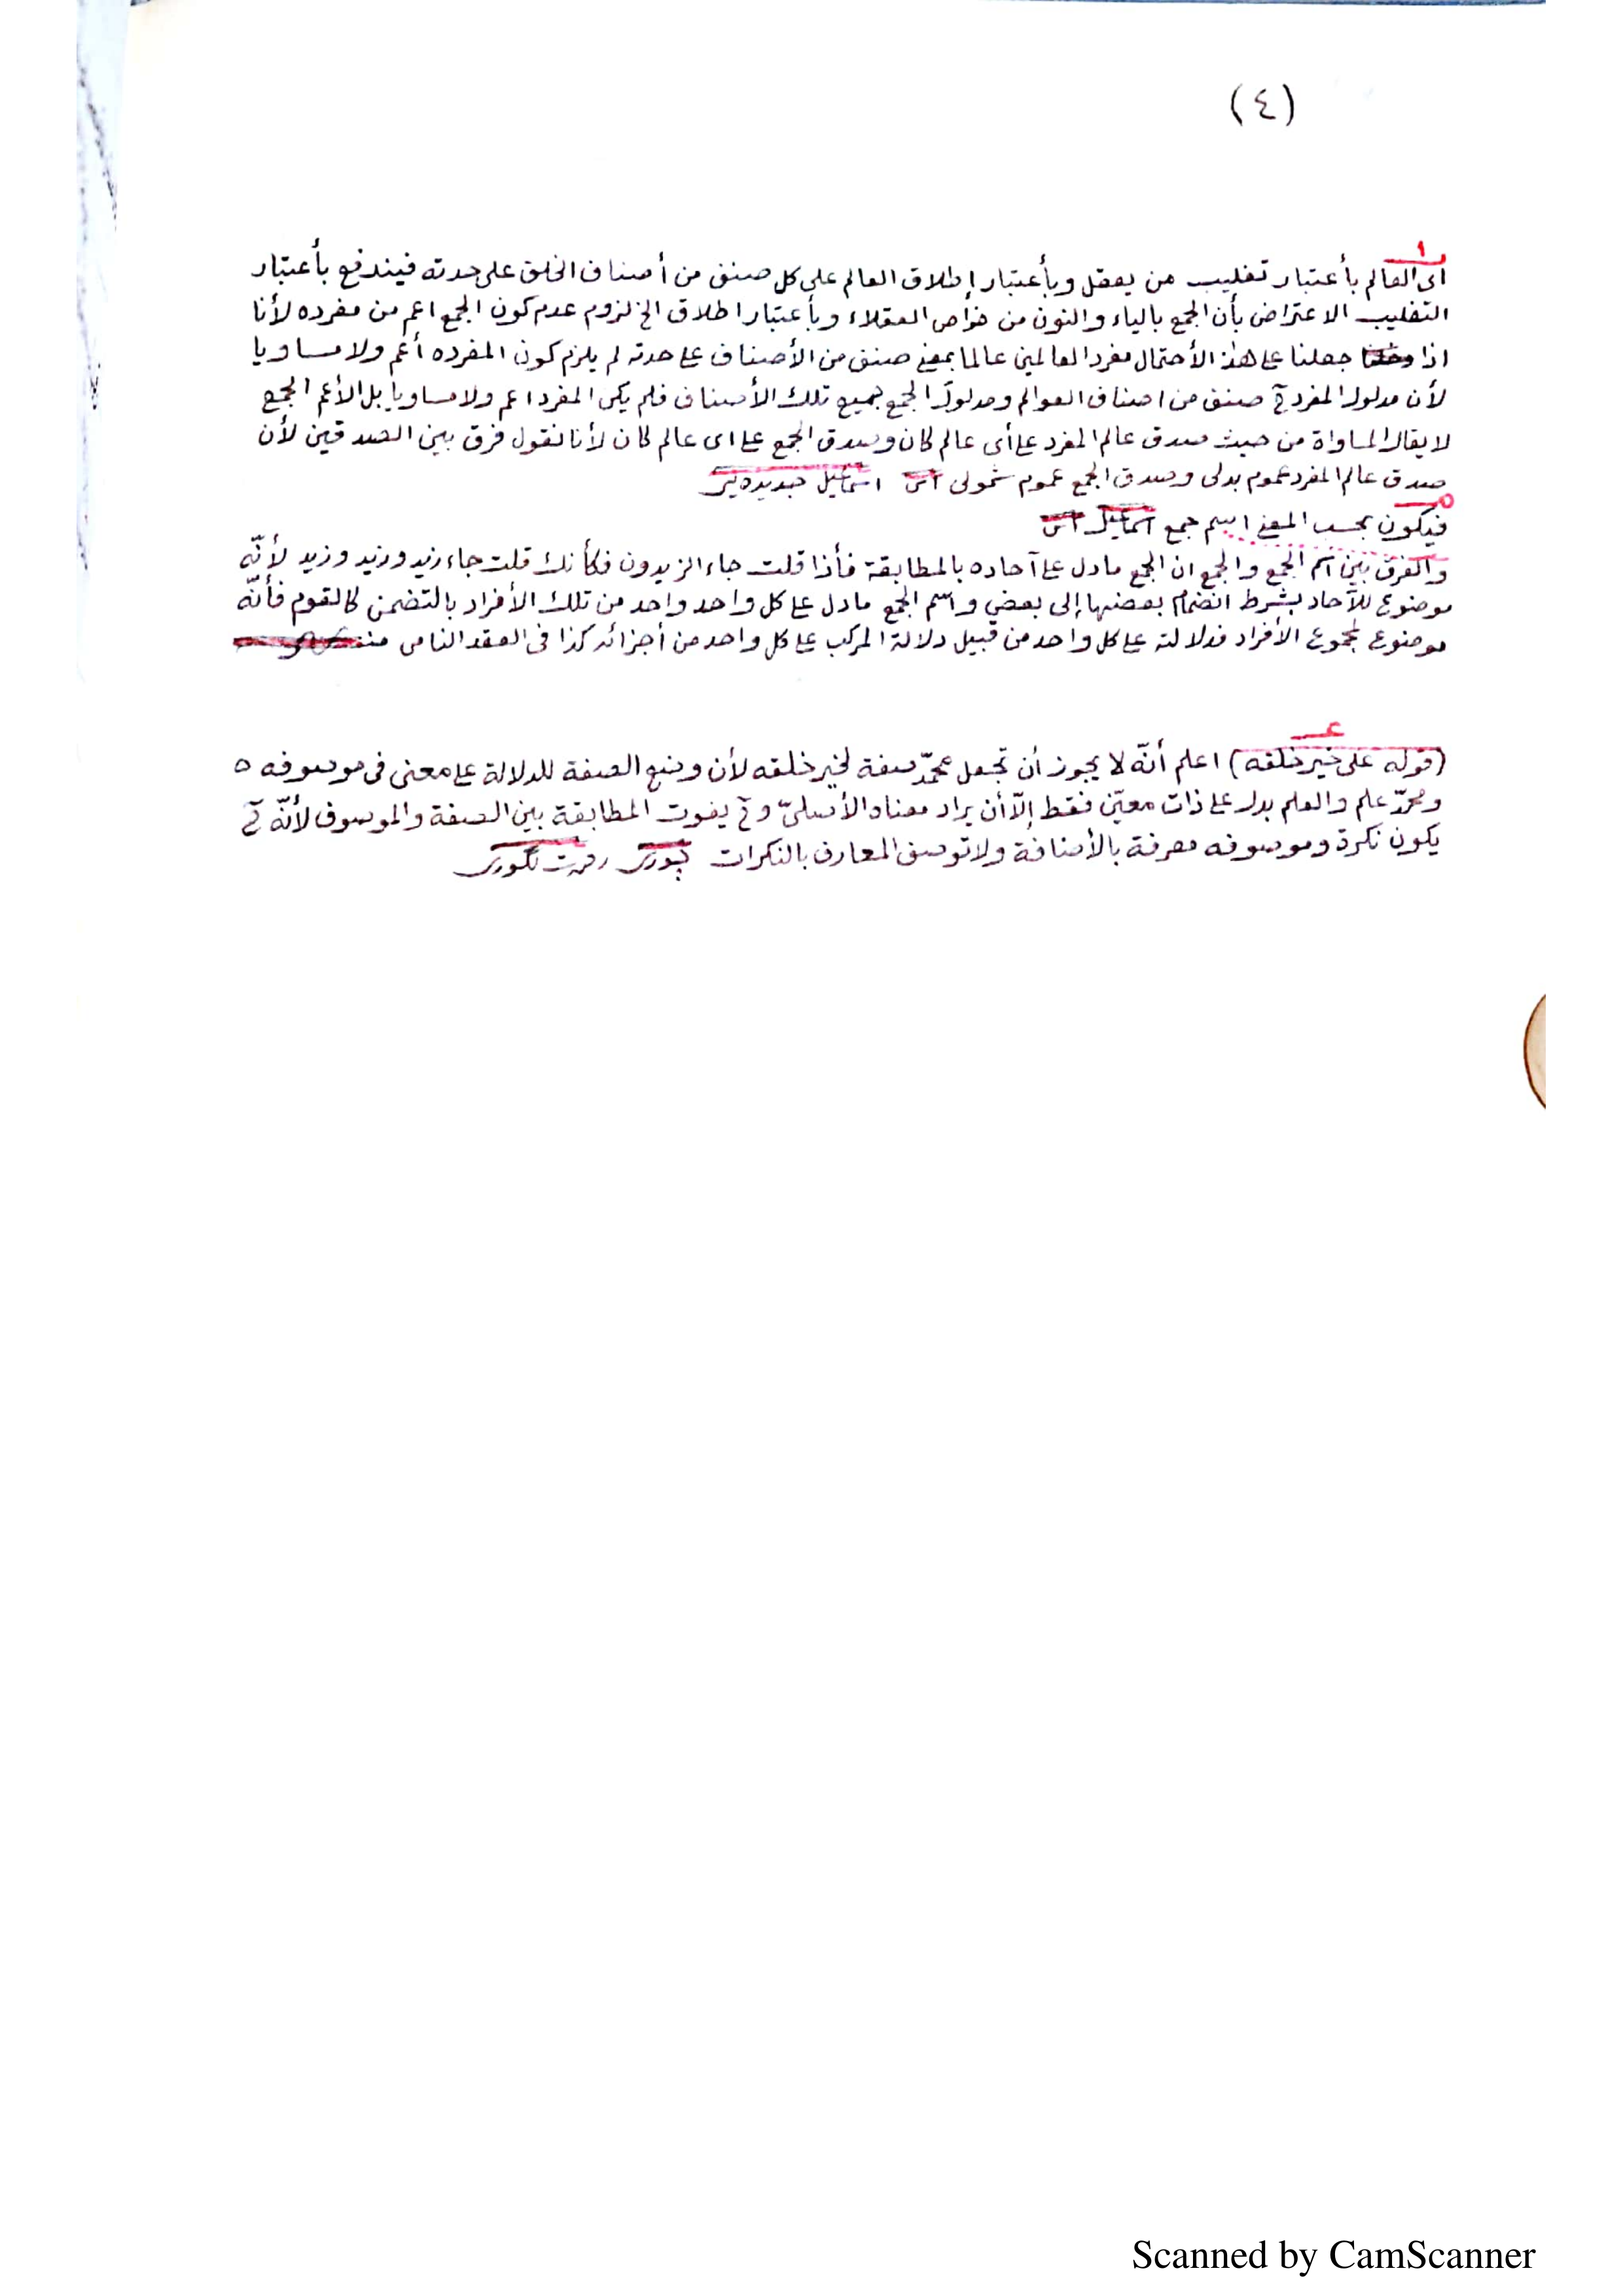 (٤)
١
اى العالم بأعتبار تغليب من يعقل وبأعتبار إطلاق العالم على كل صنف من أصناف الخلق على حدته فيندفع بأعتبار
التغليب الاعتراض بأن الجمع بالياء والنون من خواص العقلاء وبأعتبار اطلاق الخ لزوم عدم كون الجمع اعم من مفرده لأنا
اذا جعلنا على هذا الأحتمال مفرد العالمين عالما بمعنى صنف من الأصناف على حدته لم يلزم كون المفرده أعم ولا مساويا
لأن مدلول المفرد ح صنف من اصناف العوالم ومدلول الجمع جميع تلك الأصناف فلم يكن المفرد اعم ولا مساويا بل الأعم الجمع
لا يقال المساواة من حيث صدق عالم المفرد على أى عالم كان وصدق الجمع على اى عالم كان لأنا نقول فرق بين الصدقين لأن
صدق عالم المفرد عموم بدلى وصدق الجمع عموم شمولى اسماعيل
فيكون بحسب المعنى اسم جمع اسماعيل
والفرق بين اسم الجمع والجمع ان الجمع مادل على آحاده بالمطابقة فأذا قلت جاء الزيدون فكأنك قلت جاء زيد وزيد وزيد لأنّه
موضوع للآحاد بشرط انضمام بعضها إلى بعض واسم الجمع مادل على كل واحد واحد من تلك الأفراد بالتضمن كالقوم فأنّه
موضوع لمجموع الأفراد فدلالته على كل واحد من قبيل دلالة المركب على كل واحد من أجزائه كذا فى العقد النامى
ع
(قوله على خير خلقه) اعلم أنّه لا يجوز أن تجعل محمّد صفة لخير خلقه لأن وضع الصفة للدلالة على معنى فى موصوفه ه
ومحمّد علم والعلم يدل على ذات معيّن فقط إلّا أن يراد معناه الأصلىّ وح يفوت المطابقة بين الصفة والموصوف لأنّه ح
يكون نكرة وموصوفه معرفة بالأضافة ولا توصف المعارف بالنكرات
Scanned by CamScanner